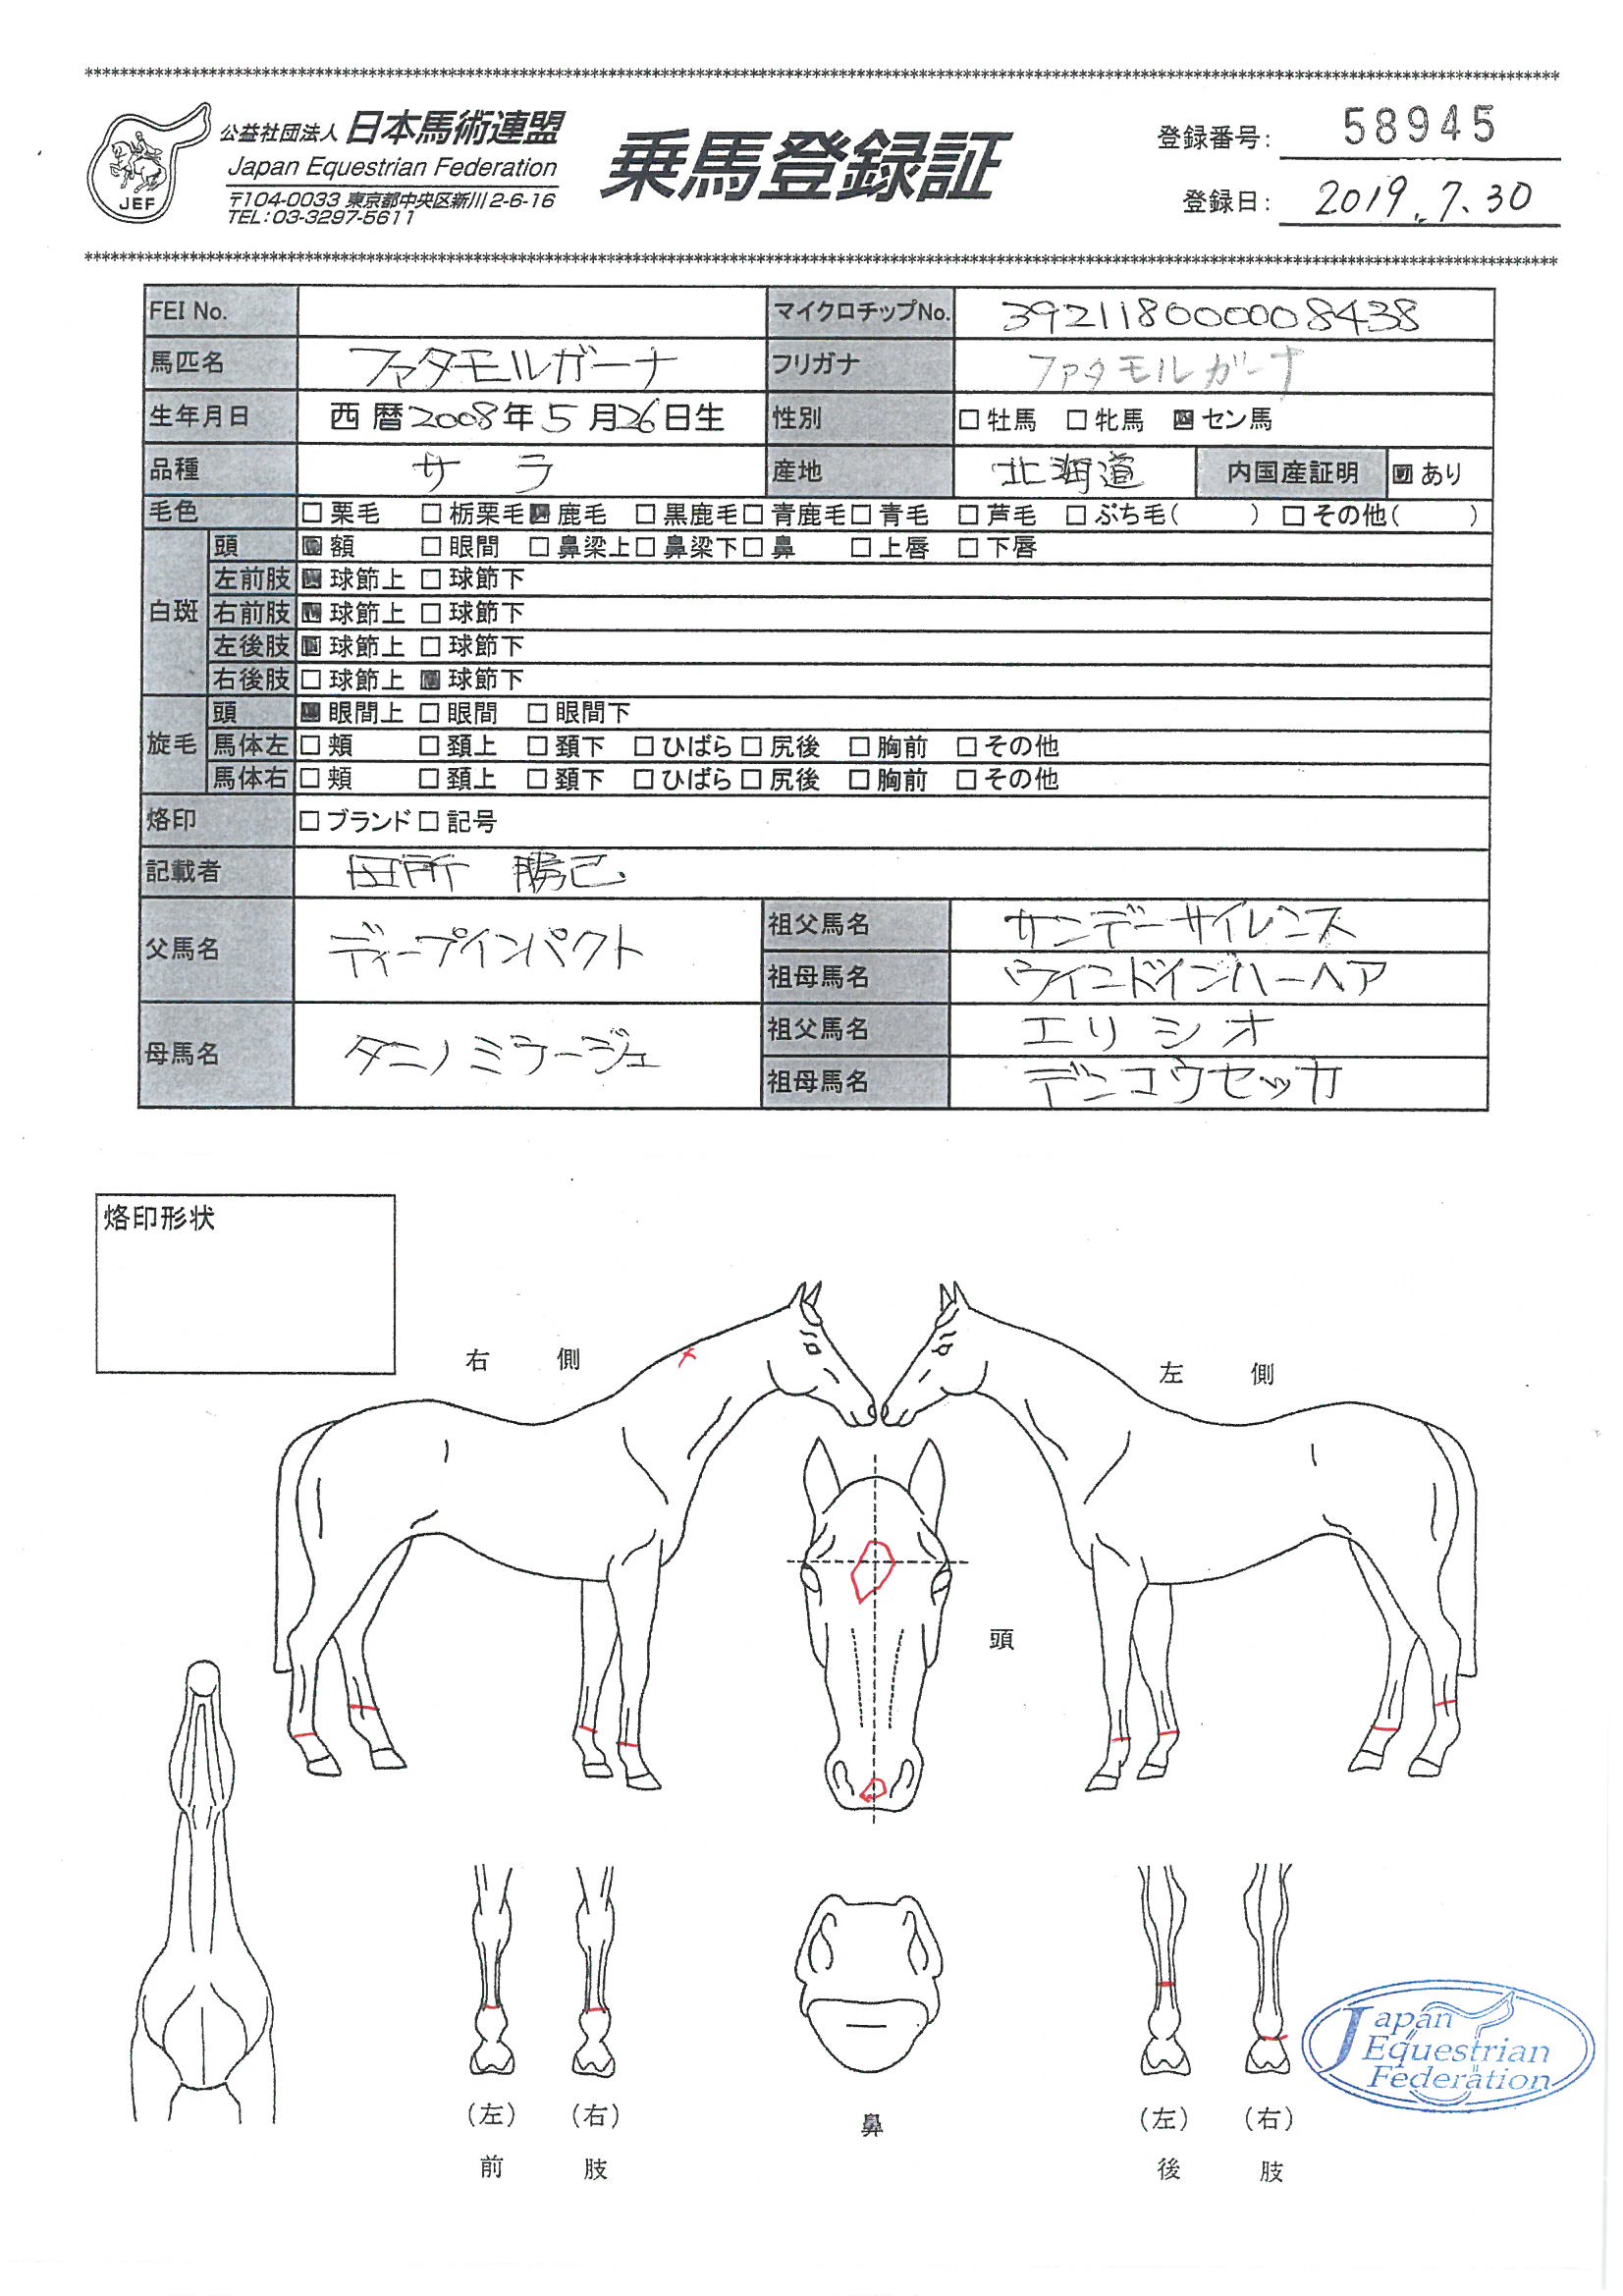 ********************************************************************************
公益社団法人 日本馬術連盟
Japan Equestrian Federation
〒104-0033 東京都中央区新川2-6-16
TEL:03-3297-5611
JEF
乗馬登録証
登録番号: 58945
登録日: 2019.7.30
********************************************************************************
FEI No. マイクロチップNo. 392118000008438
馬匹名 ファタモルガーナ フリガナ ファタモルガーナ
生年月日 西暦2008年5月26日生 性別 □牡馬 □牝馬 ■セン馬
品種 サラ 産地 北海道 内国産証明 ■あり
毛色 □栗毛 □栃栗毛 ■鹿毛 □黒鹿毛 □青鹿毛 □青毛 □芦毛 □ぶち毛( ) □その他( )
白斑 頭 ■額 □眼間 □鼻梁上 □鼻梁下 □鼻 □上唇 □下唇
左前肢 ■球節上 □球節下
右前肢 ■球節上 □球節下
左後肢 ■球節上 □球節下
右後肢 □球節上 ■球節下
旋毛 頭 ■眼間上 □眼間 □眼間下
馬体左 □頬 □頚上 □頚下 □ひばら □尻後 □胸前 □その他
馬体右 □頬 □頚上 □頚下 □ひばら □尻後 □胸前 □その他
烙印 □ブランド □記号
記載者 田所 勝己
父馬名 ディープインパクト 祖父馬名 サンデーサイレンス
祖母馬名 ウインドインハーヘア
母馬名 タニノミラージュ 祖父馬名 エリシオ
祖母馬名 デンコウセッカ
烙印形状
右側
左側
頭
(左) (右)
前肢
鼻
(左) (右)
後肢
Japan
Equestrian
Federation